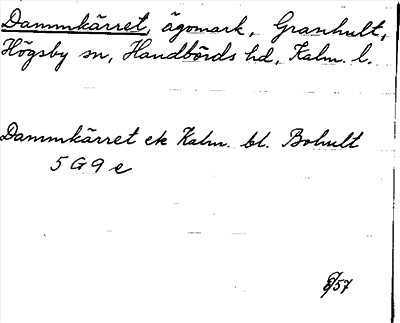 Dammkärret, ägomark, Granhult,
Högsby sn, Handbörds hd, Kalm. l.
Dammkärret ek Kalm. bl. Bohult
5 G 9 e
57